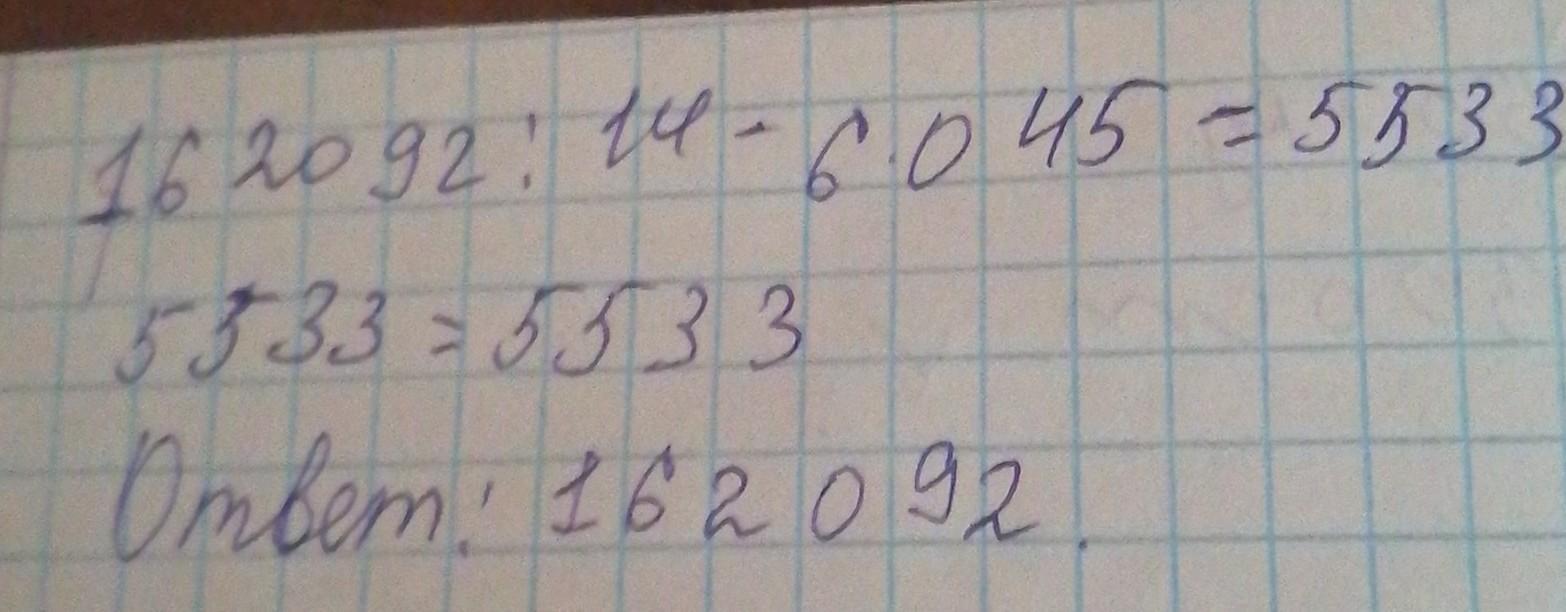 162092 : 14 - 6045 = 5533
5533 = 5533
Ответ: 162092.